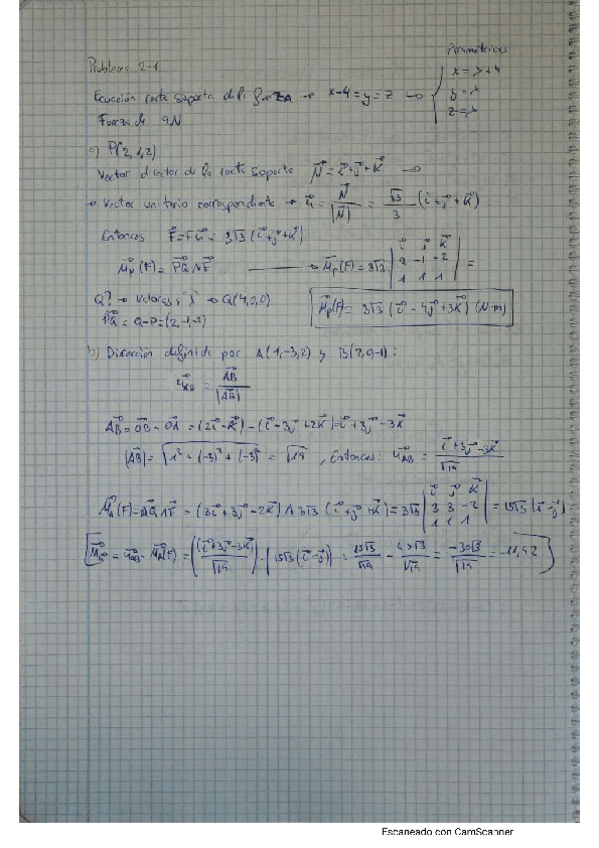 Paramétricas
Problema 2-1
x = λ+4
Ecuación recta soporte de la fuerza → x-4 = y = z →
y = λ
z = λ
Fuerza de 9N
a) P(2,1,2)
Vector director de la recta soporte N = i+j+k →
→ Vector unitario correspondiente → u = N/|N| = √3/3 (i+j+k)
Entonces F = F·u = 3√3 (i+j+k)
i j k
Mp(F) = PQ ∧ F → Mp(F) = 3√3 | 2 -1 -2 | =
1 1 1
Q? → Valores "λ" → Q(4,0,0)
Mp(F) = 3√3 (i - 4j + 3k) (N·m)
PQ = Q-P = (2,-1,-2)
b) Dirección definida por A(1,-3,2) y B(2,0,-1):
u_AB = AB/|AB|
AB = OB - OA = (2i - k) - (i - 3j + 2k) = i + 3j - 3k
|AB| = √1² + (-3)² + (-3)² = √19, Entonces: u_AB = i+3j-3k/√19
i j k
M_A(F) = AQ ∧ F = (3i + 3j - 2k) ∧ 3√3 (i + j + k) = 3√3 | 3 3 -2 | = 15√3 (i - j)
1 1 1
= u_AB · M_A(F) = ((i+3j-3k)/√19) · (15√3 (i - j)) = 15√3/√19 - 45√3/√19 = -30√3/√19 = -11,92
Escaneado con CamScanner